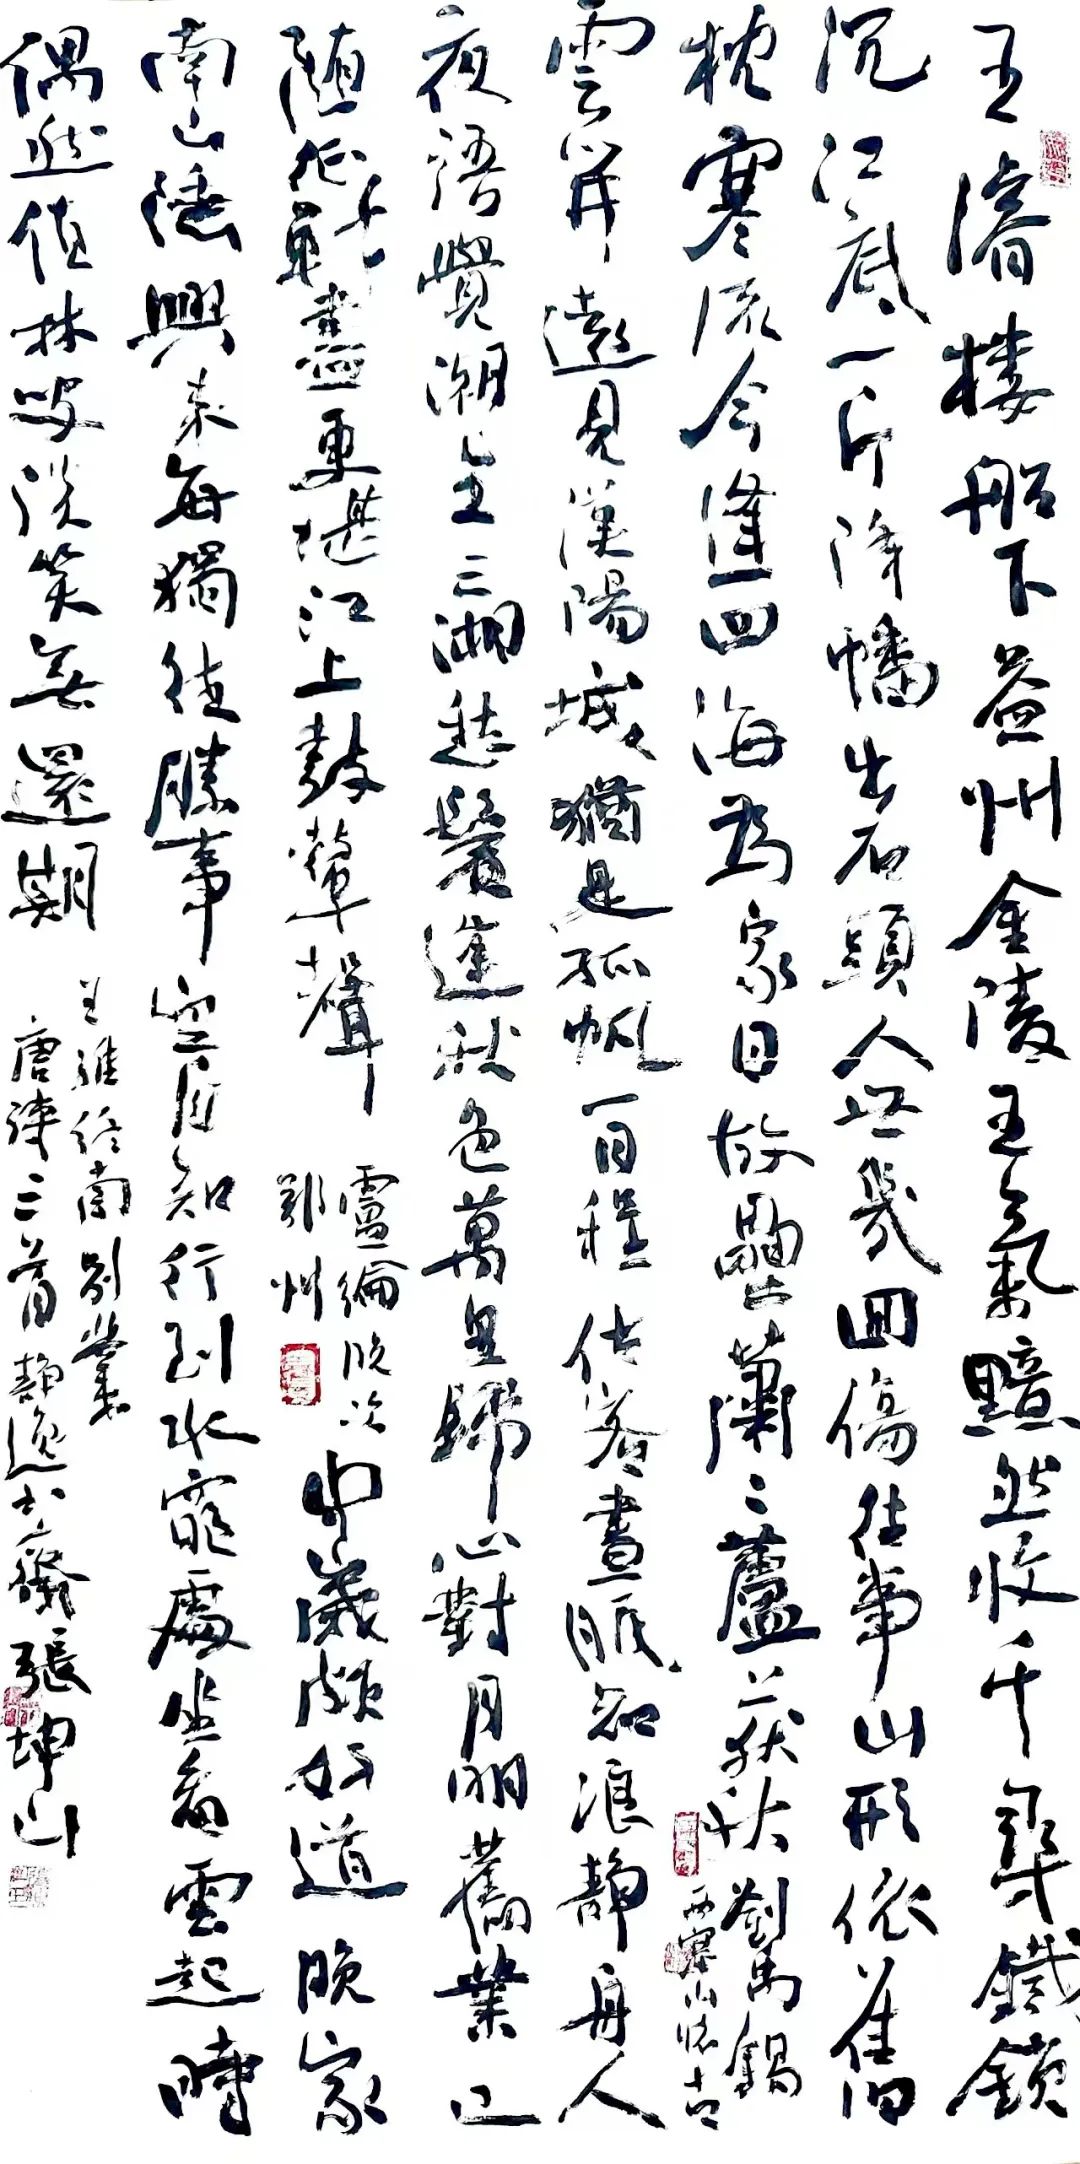 王濬楼船下益州金陵王氣黯然收千尋鐵鎖
沉江底一片降幡出石頭人世幾回傷往事山形依舊
枕寒流今逢四海為家日故壘蕭〻蘆荻秋
劉禹錫
西塞山懷古
雲開遠見漢陽城〻猶是孤帆一日程估客晝眠知浪靜舟人
夜語覺潮生三湘愁鬢逢秋色萬里歸心對月明舊業已
随征戰盡更堪江上鼓鼙聲
盧綸晚次
鄂州
中歲頗好道晚家
南山陲興來每獨往勝事空自知行到水窮處坐看雲起時
偶然值林叟談笑無還期
王維終南別業
唐詩三首靜逸书齋張坤山